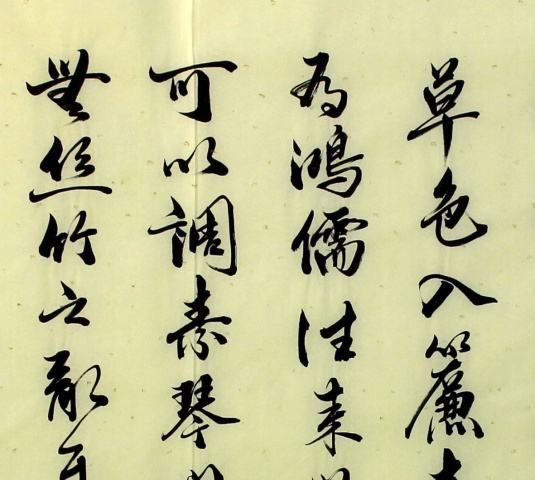 草色入簾
有鴻儒往來
可以調素琴
無絲竹之亂耳